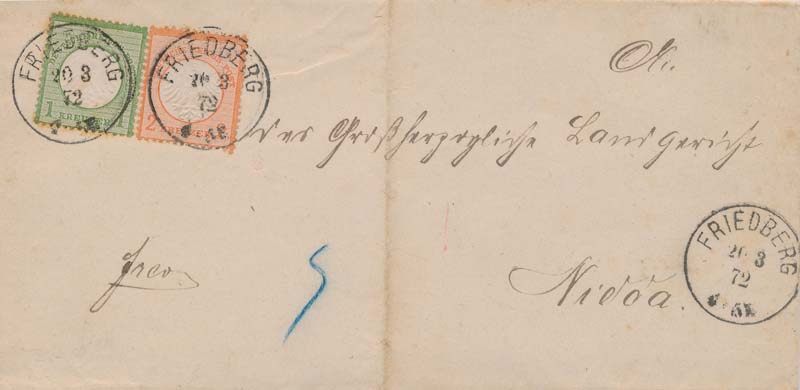 FRIEDBERG
20 3
72
1
KREUZER
FRIEDBERG
20 3
72
2
An
das Großherzogliche Landgericht
frco
Nidda.
FRIEDBERG
20 3
72